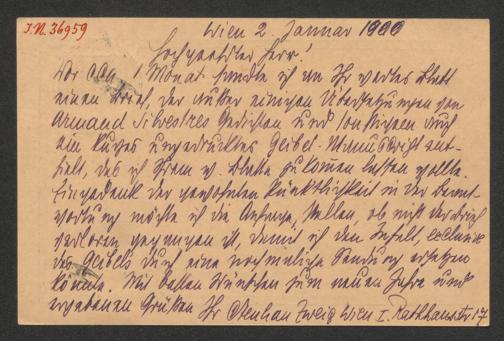 I.N. 36959
Wien 2 Januar 1900
Hochgeehrter Herr!
Vor ca. 1 Monat sandte ich an Ihr wertes Blatt
einen Brief, der außer einigen Übersetzungen von
Armand Silvestres Gedichten und sonstigem auch
ein kurzes ungedrucktes Geibel-Manuscript ent-
hielt, das ich Ihrem w. Blatte zukommen lassen wollte.
Eingedenk der gewohnten Pünktlichkeit in der Beant-
wortung möchte ich die Anfrage stellen, ob nicht der Brief
verloren gegangen ist, damit ich den Inhalt, exclusive
des Geibels durch eine nochmalige Sendung ersetzen
könnte. Mit besten Wünschen zum neuen Jahre und
ergebenen Grüßen Ihr Stephan Zweig Wien I. Rathhausstr 17